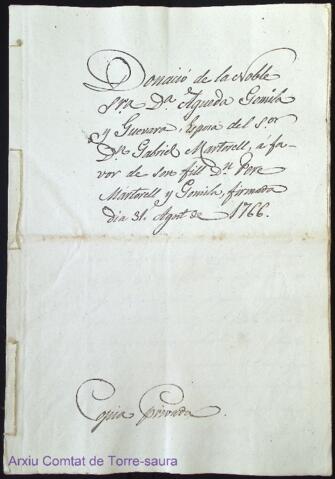 Donació de la Noble
Sra. Da. Agueda Gomila
y Guevara, Espoza del Sor
Dn. Gabriel Martorell, á fa-
vor de son fill Dn. Pere
Martorell y Gomila, firmada
dia 31. Agost de 1766.
Copia Privada.
Arxiu Comtat de Torre-saura